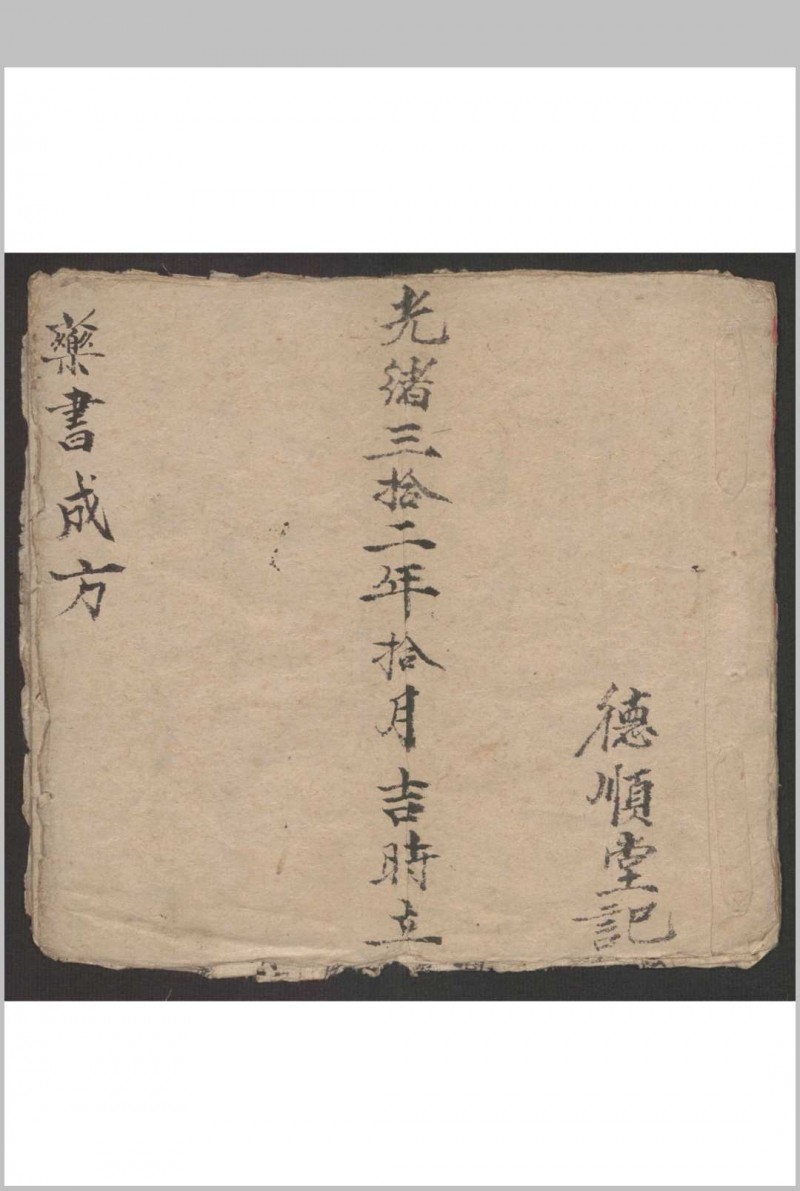 德順堂記
光緒三拾二年拾月吉時立
藥書成方